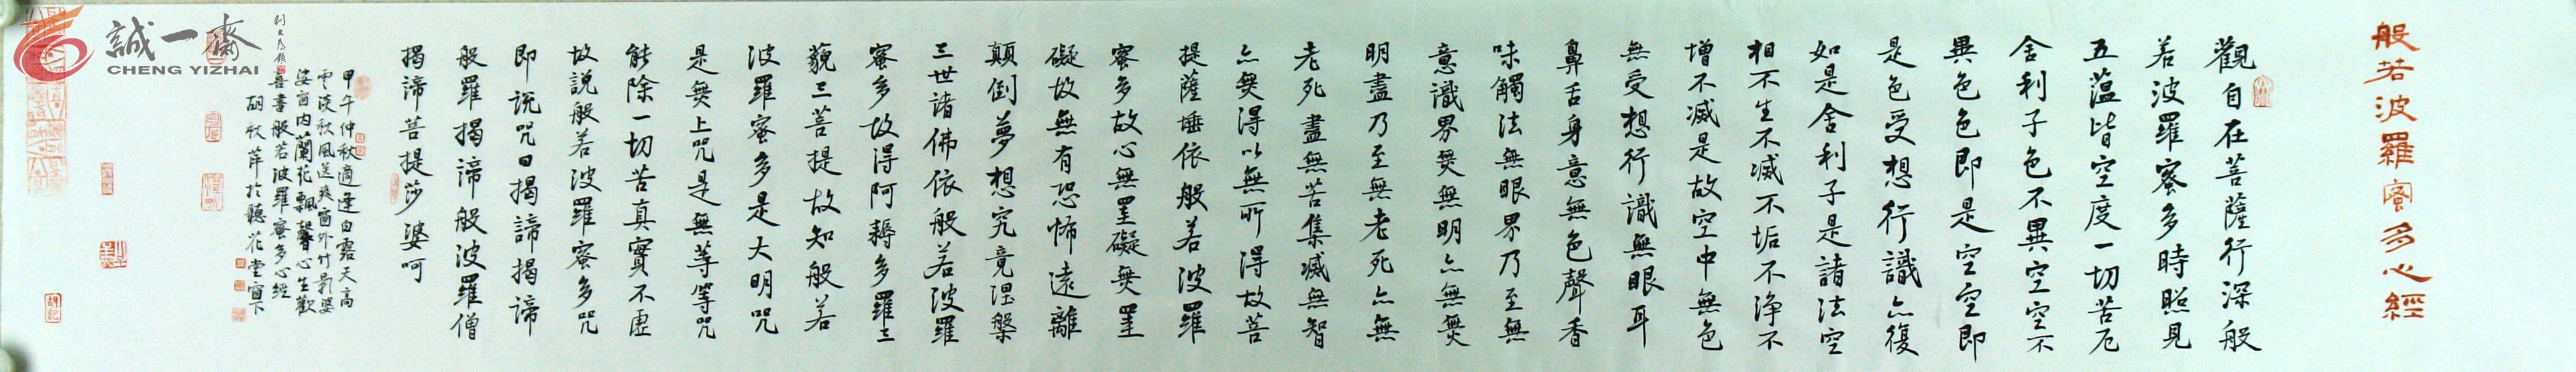 般若波羅蜜多心經
觀自在菩薩行深般
若波羅蜜多時照見
五蕰皆空度一切苦厄
舍利子色不異空空不
異色色即是空空即
是色受想行識亦復
如是舍利子是諸法空
相不生不滅不垢不淨不
增不減是故空中無色
無受想行識無眼耳
鼻舌身意無色聲香
味觸法無眼界乃至無
意識界無無明亦無無
明盡乃至無老死亦無
老死盡無苦集滅無智
亦無得以無所得故菩
提薩埵依般若波羅
蜜多故心無罣礙無罣
礙故無有恐怖遠離
顛倒夢想究竟涅槃
三世諸佛依般若波羅
蜜多故得阿耨多羅三
藐三菩提故知般若
波羅蜜多是大明咒
是無上咒是無等等咒
能除一切苦真實不虛
故說般若波羅蜜多咒
即說咒曰揭諦揭諦
般羅揭諦般波羅僧
揭諦菩提莎婆呵
甲午仲秋適逢白露天高
雲淡秋風送爽窗外竹影婆
娑窗內蘭花飄馨心生歡
喜書般若波羅蜜多心經
胡秋萍於聽花堂窗下
誠一齋
CHENG YIZHAI